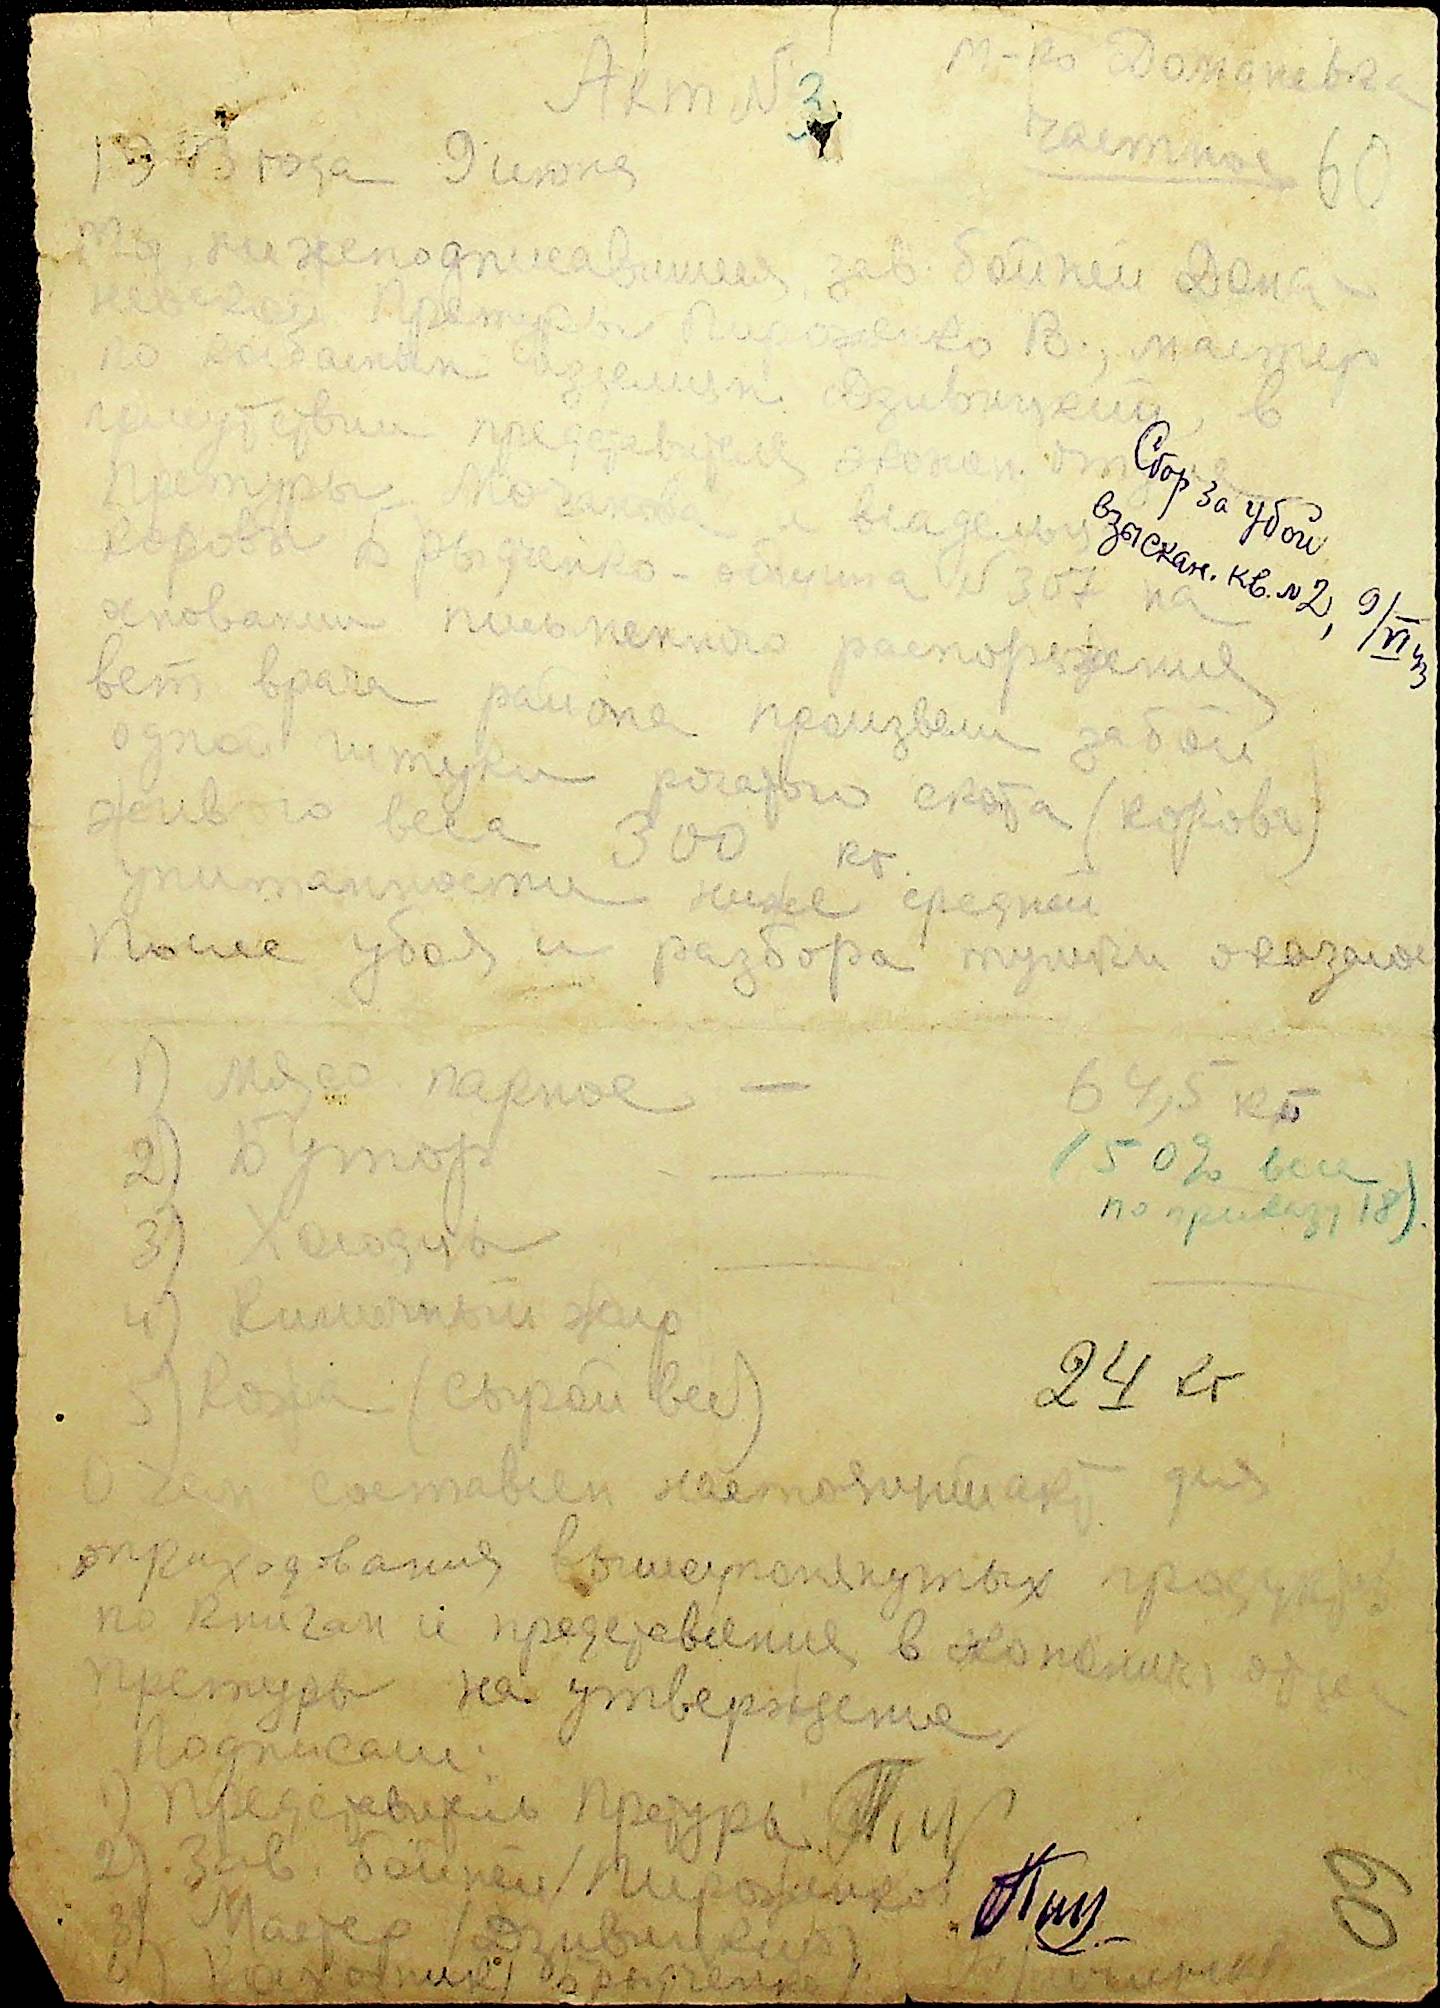 Акт № 3
м-ко Доманевка
частное 60
1943 года 9 июня
Мы, нижеподписавшиеся, зав. бойней Дома-
невской Претуры Пироженко В., мастер
по колбасным изделиям Дзивицкий, в
присутствии представителя эконом. отдела
Претуры Мочанова и владельца
коровы Брыченко - община № 307 на
основании письменного распоряжения
вет. врача района произвели забой
одной штуки рогатого скота (корова)
жив го веса 300 кг.
упитанности ниже средней
После убоя и разбора тушки оказалось
Сбор за убой
взыскан. кв. № 2, 9/VI 43
1) Мясо парное — 64,5 кг
2) Бутор —
(50% веса
по приказу 18).
3) Холодцы —
4) Кишечный жир —
5) Кожа (сырой вес) 24 кг
О чем составлен настоящий акт для
оприходования вышеупомянутых продуктов
по книгам и представления в экономич. отдел
Претуры на утверждение
Подписали:
1) Представитель Претуры
2) Зав. бойней /Пироженко/
3) Мастер /Дзивицкий/
4) /Брыченко/
60